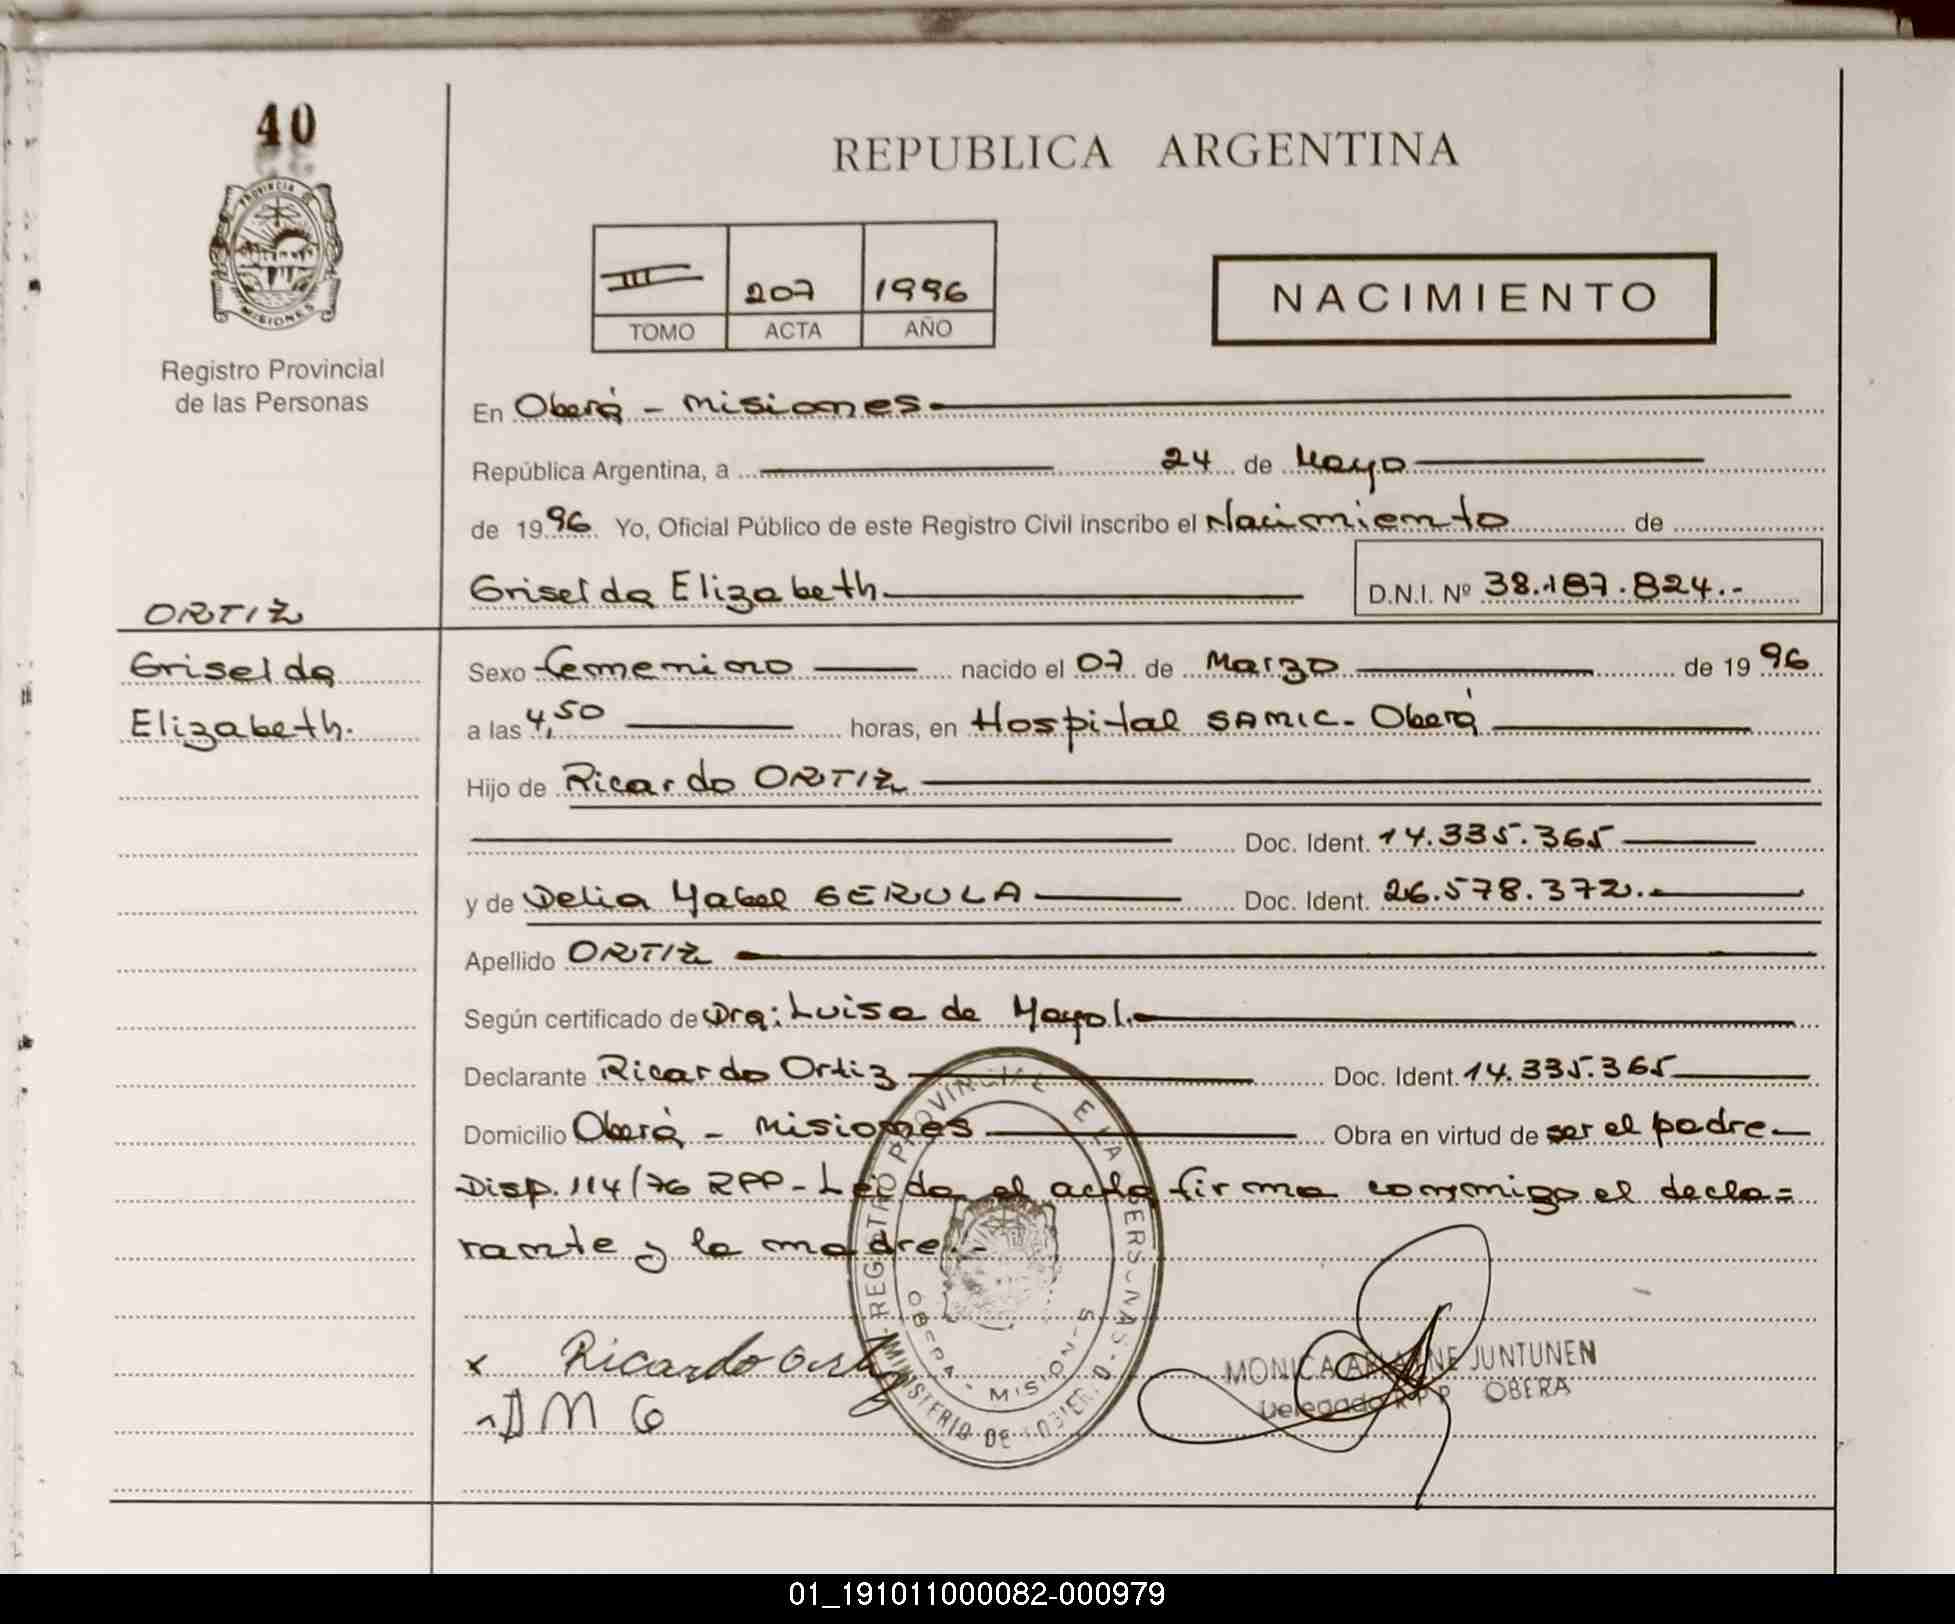 40
PROVINCIA DE
MISIONES
Registro Provincial
de las Personas
ORTIZ
Griselda
Elizabeth.
REPUBLICA ARGENTINA
III 207 1996
TOMO ACTA AÑO
NACIMIENTO
En Oberá - Misiones.
República Argentina, a 24 de Mayo
de 1996 Yo, Oficial Público de este Registro Civil inscribo el Nacimiento de
Griselda Elizabeth D.N.I. Nº 38.187.824.-
Sexo femenino nacido el 07 de Marzo de 1996
a las 4,50 horas, en Hospital SAMIC - Oberá
Hijo de Ricardo ORTIZ
Doc. Ident. 14.335.365
y de Delia Mabel GERULA Doc. Ident. 26.578.372.-
Apellido ORTIZ
Según certificado de Dra: Luisa de Mayol.
Declarante Ricardo Ortiz Doc. Ident. 14.335.365
Domicilio Oberá - Misiones Obra en virtud de ser el padre
Disp. 114/76 RPP - Leída el acta firma conmigo el decla=
rante y la madre.-
x Ricardo Ortiz
DMG
REGISTRO PROVINCIAL DE LAS PERSONAS
OBERA - MISIONES
MINISTERIO DE GOBIERNO
MONICA JUNTUNEN
Delegado R P P OBERA
01_191011000082-000979